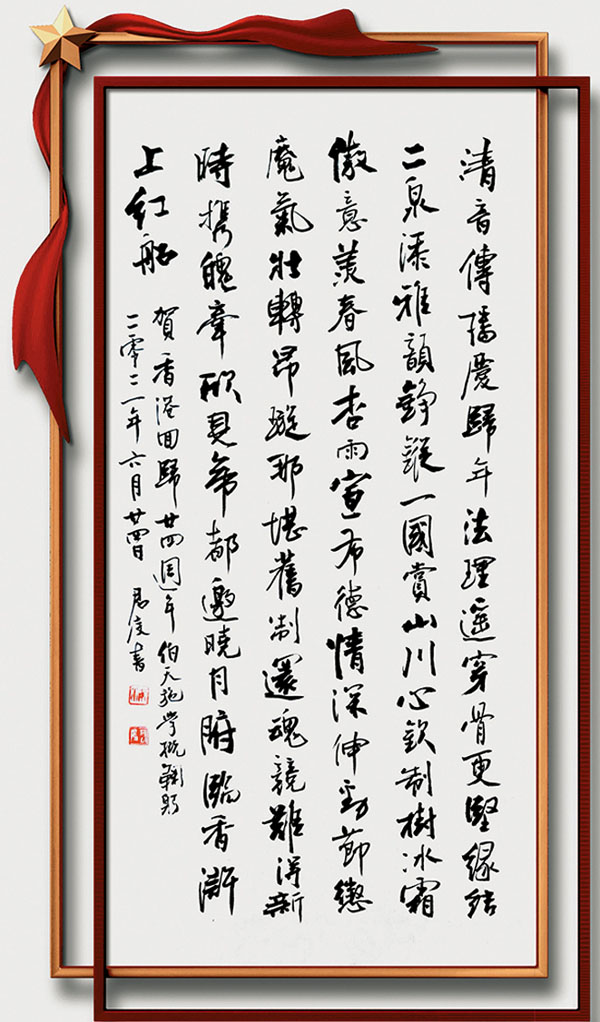 清音傳播慶歸年法理遥穿骨更堅緣結
二泉添雅韻錚一國賞山川心欽制樹冰霜
傲意羨春風杏雨宣布德情深伸勁節懲
魔氣壯轉昂璇那堪舊制還魂競難得新
時携魄牽欣見帝都邀曉月臨香滸
上紅船
賀香港回歸廿四週年伯天施學概鞠躬
二零二一年六月廿四日書